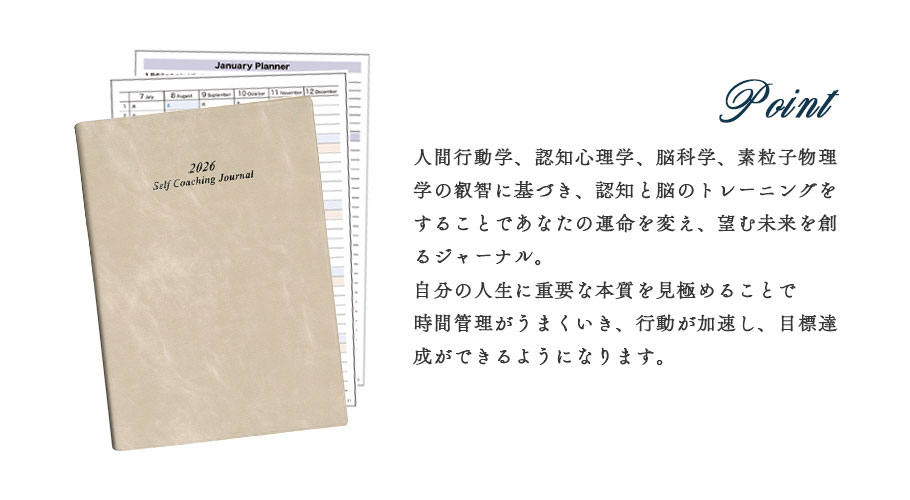 January Planner
7 July 8 August 9 September 10 October 11 November 12 December
2026
Self Coaching Journal
Point
人間行動学、認知心理学、脳科学、素粒子物理
学の叡智に基づき、認知と脳のトレーニングを
することであなたの運命を変え、望む未来を創
るジャーナル。
自分の人生に重要な本質を見極めることで
時間管理がうまくいき、行動が加速し、目標達
成ができるようになります。